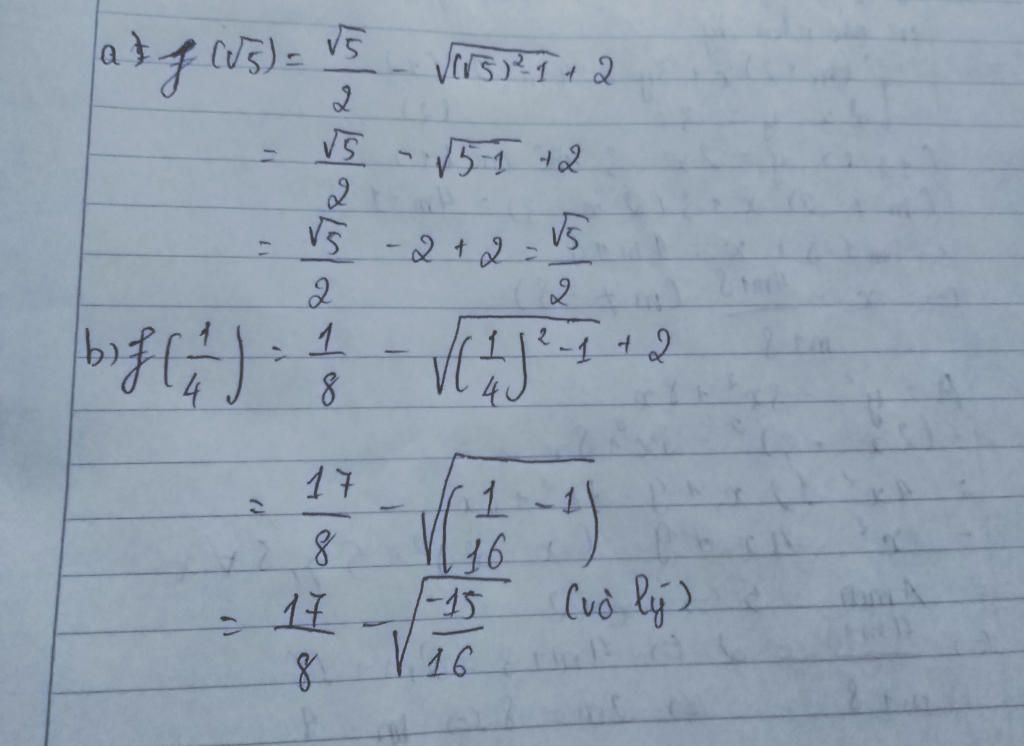 a) f(√5) = √5/2 - √((√5)²-1) + 2
= √5/2 - √(5-1) + 2
= √5/2 - 2 + 2 = √5/2
b) f(1/4) = 1/8 - √((1/4)²-1) + 2
= 17/8 - √(1/16 - 1)
= 17/8 - √(-15/16) (vô lý)